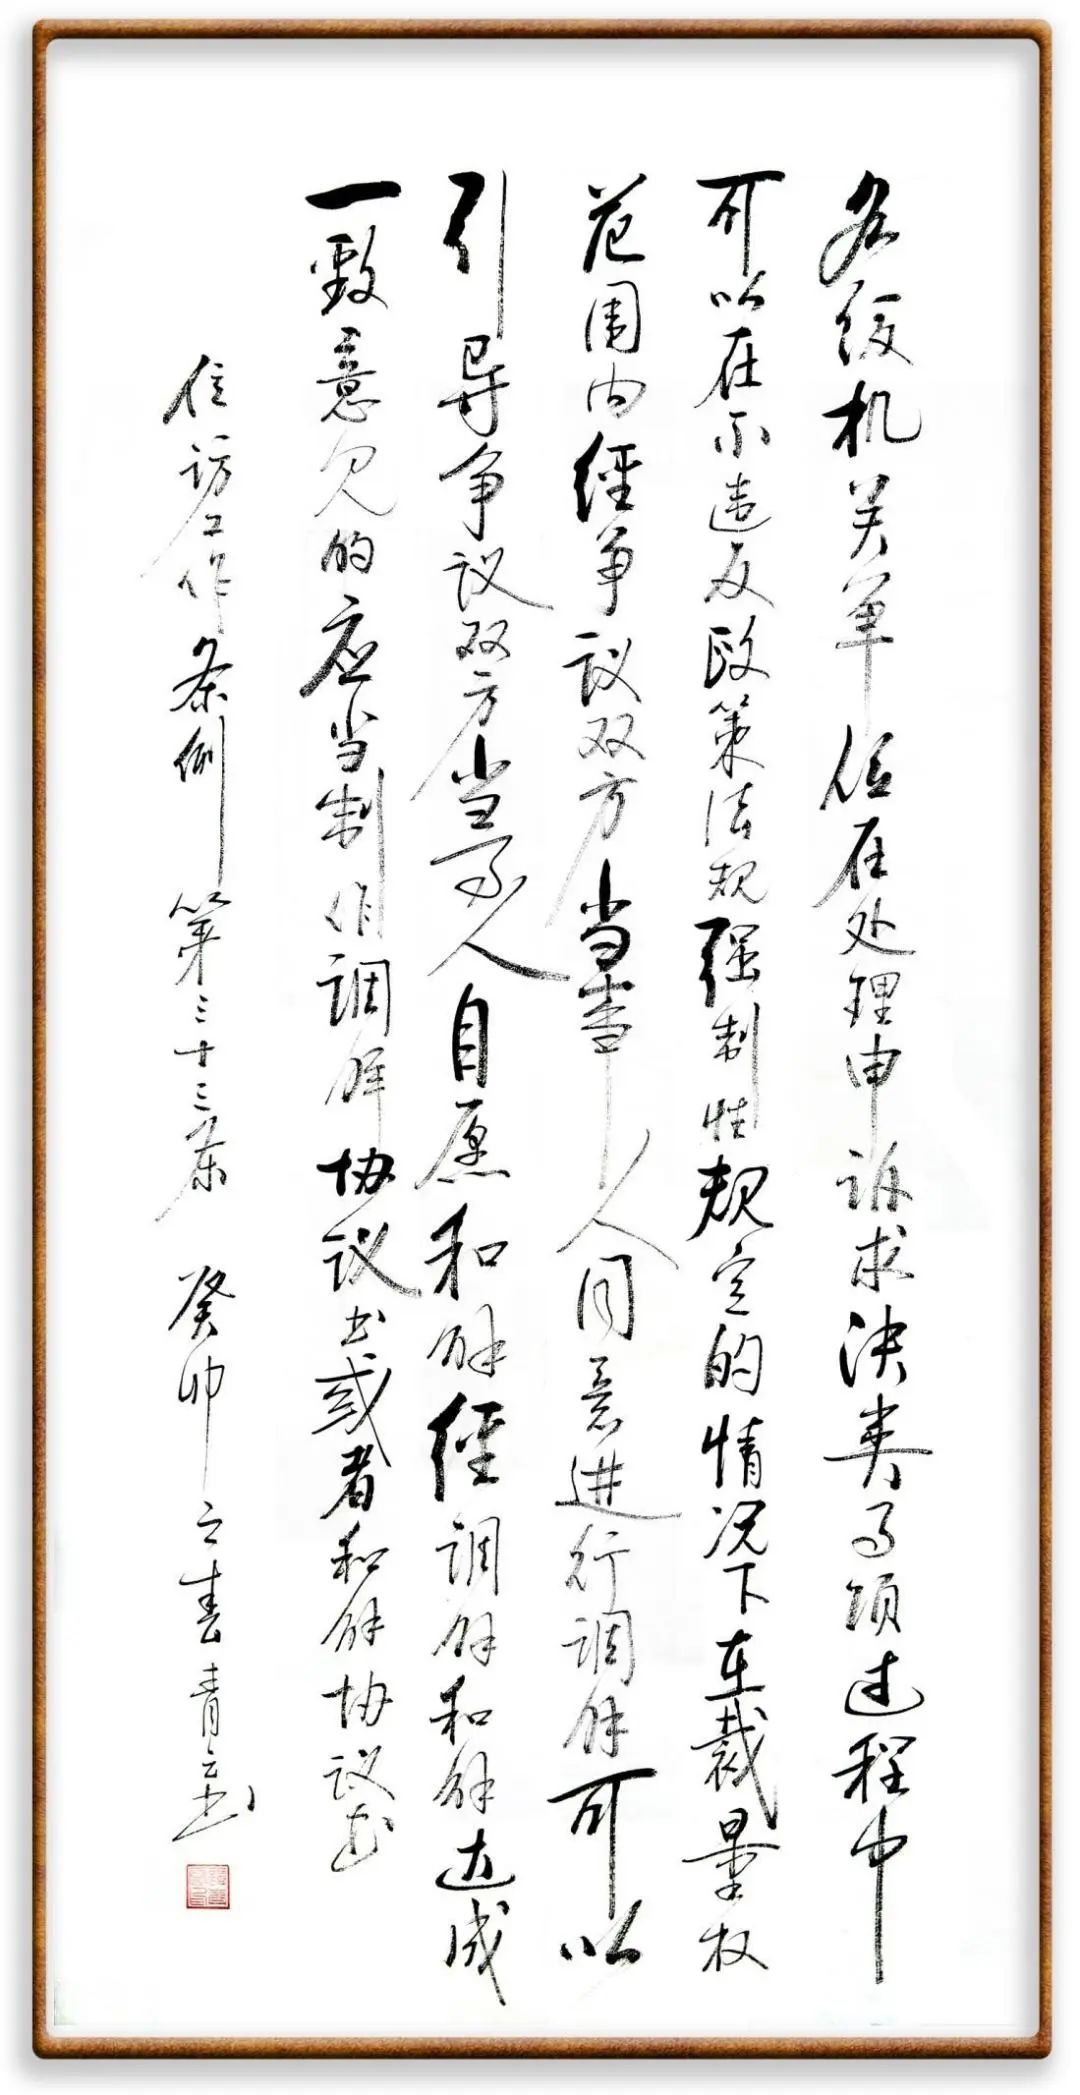 各级机关单位在处理申诉求决类事项过程中
可以在不违反政策法规强制性规定的情况下在裁量权
范围内经争议双方当事人同意进行调解可以
引导争议双方当事人自愿和解经调解和解达成
一致意见的应当制作调解协议书或者和解协议书
信访工作条例第三十三条 癸卯之春青云书